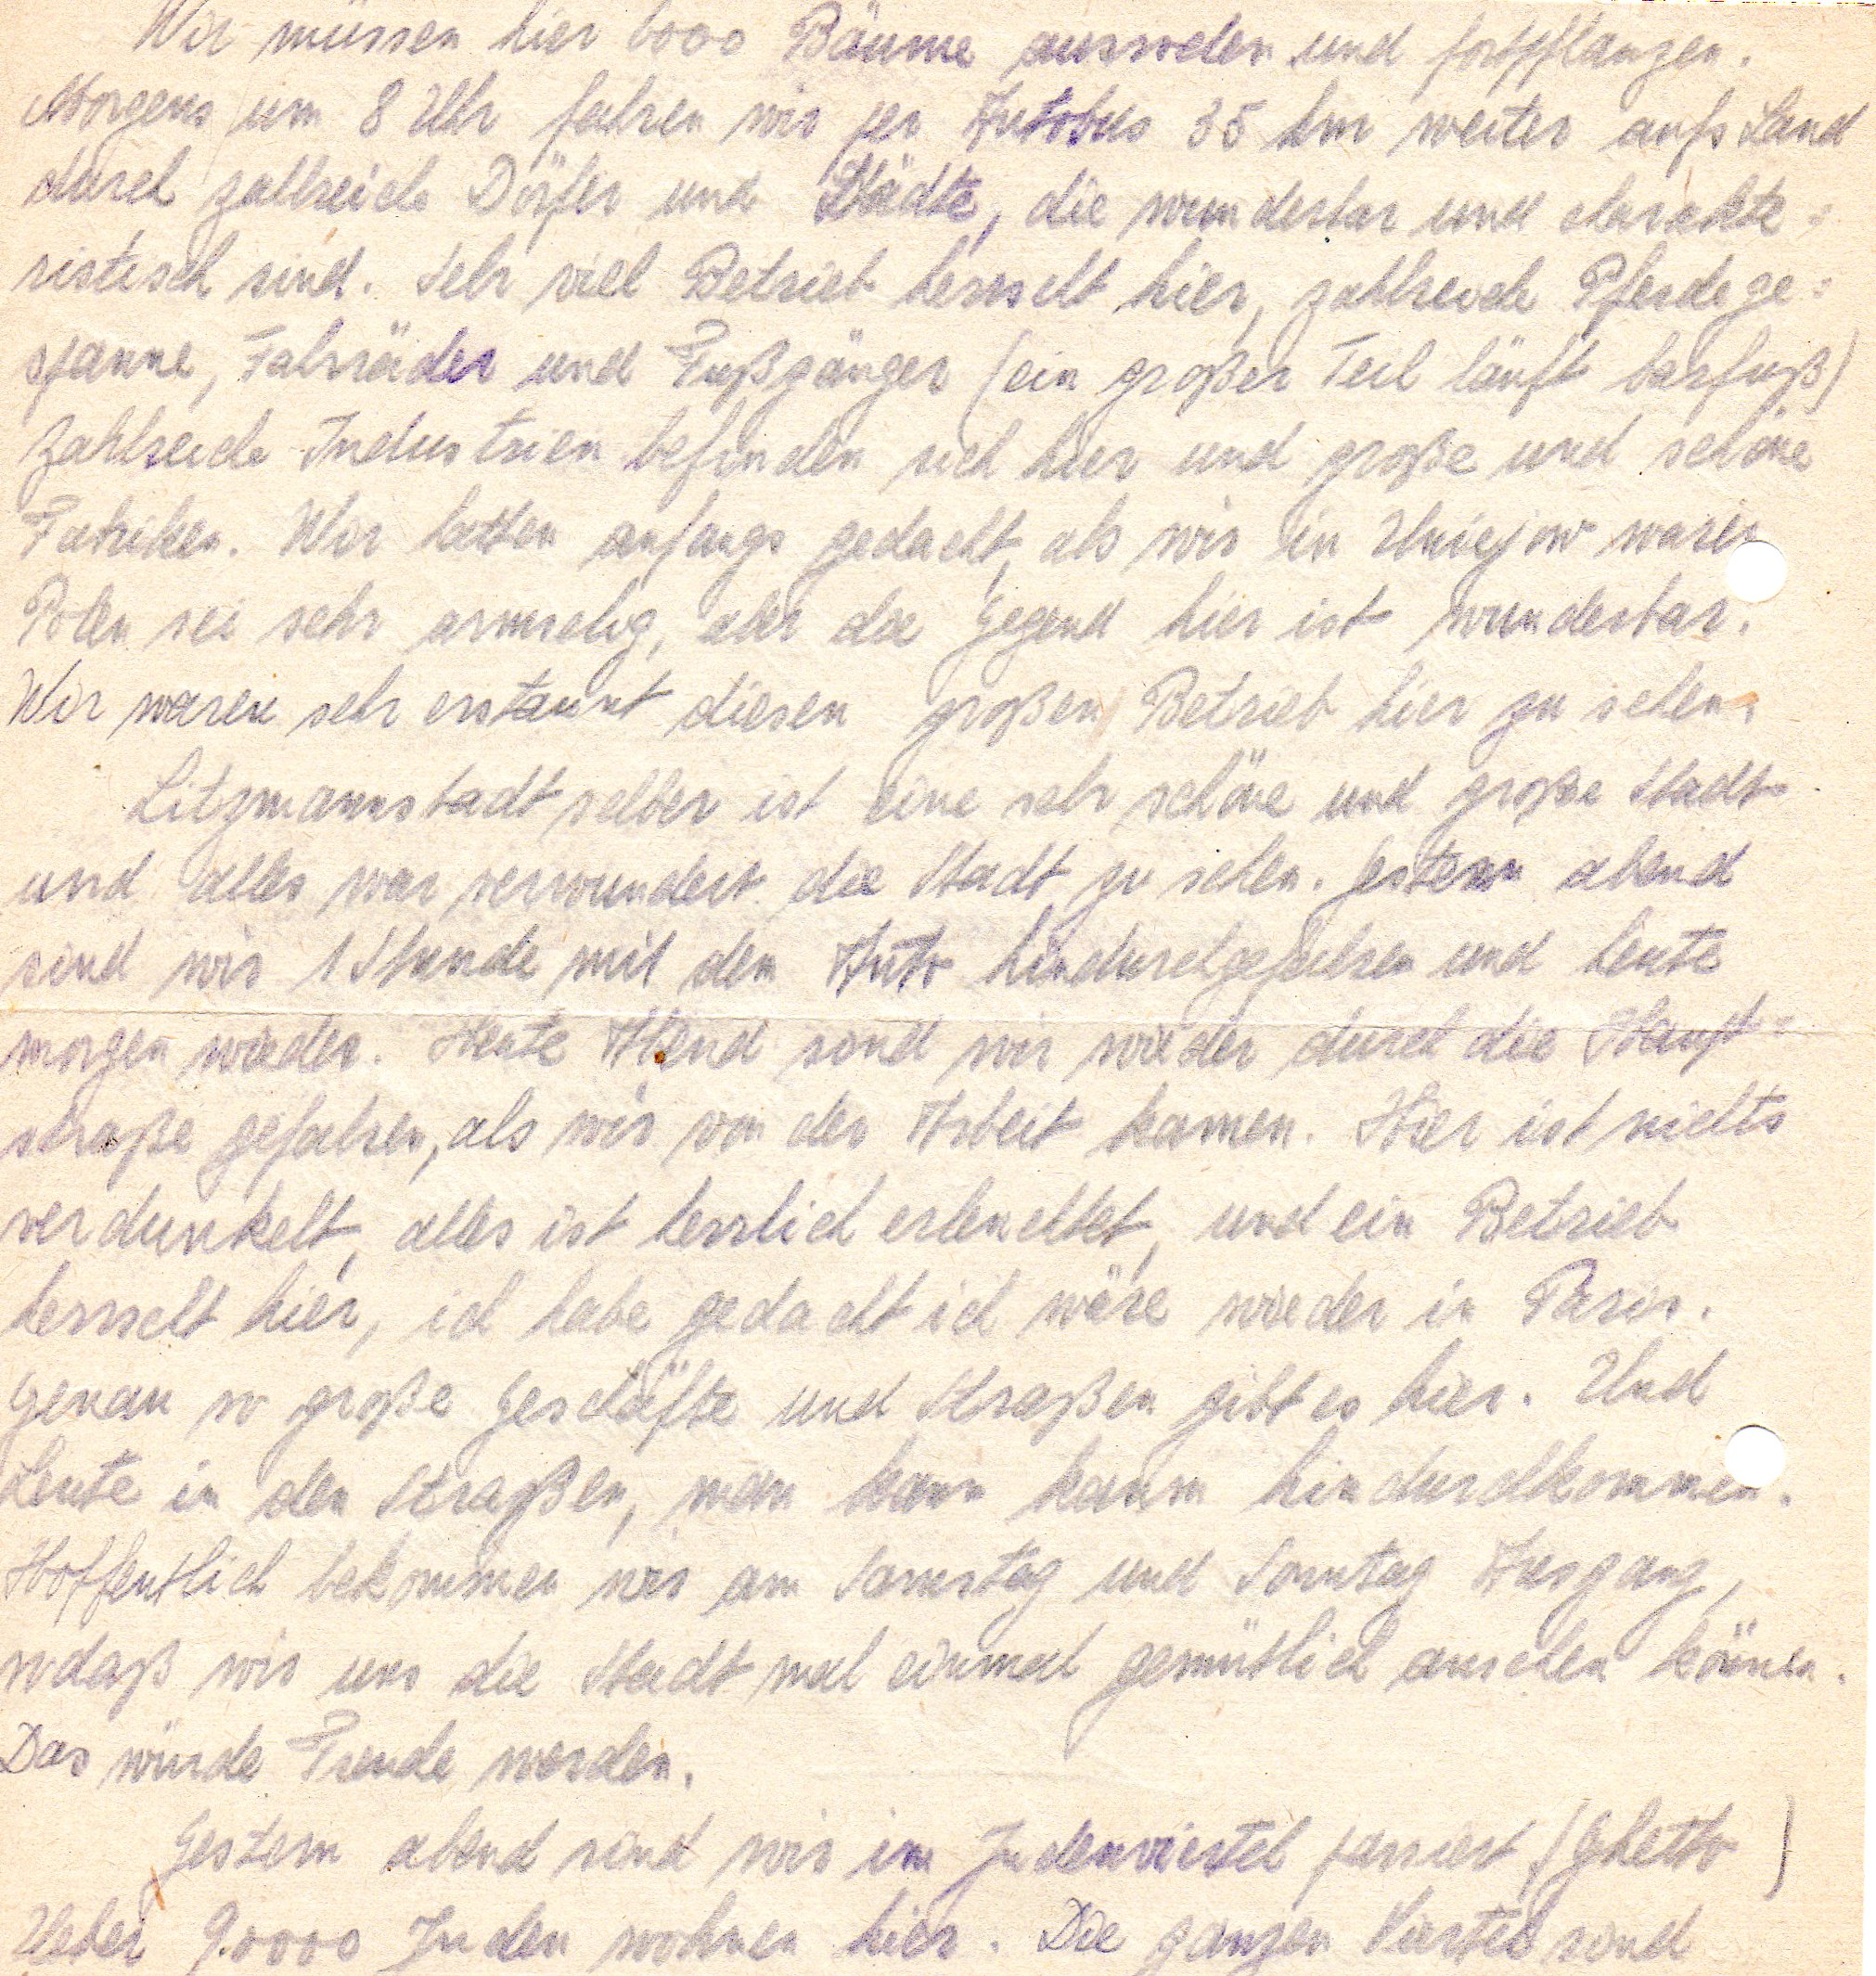 Wir müssen hier 6000 Bäume ausroden und fortpflanzen.
Morgens um 8 Uhr fahren wir per Autobus 35 km weiter aufs Land
durch zahlreiche Dörfer und Städte, die wunderbar und charakte=
ristisch sind. Sehr viel Betrieb herrscht hier, zahlreiche Pferdege=
spanne, Fahrräder und Fußgänger (ein großer Teil läuft barfuß)
Zahlreiche Industrien befinden sich hier und große und schöne
Fabriken. Wir hatten anfangs gedacht, als wir in Uniejow waren
Polen sei sehr armselig, aber die Gegend hier ist wunderbar.
Wir waren sehr erstaunt diesen großen Betrieb hier zu sehen.
Litzmannstadt selber ist eine sehr schöne und große Stadt
und alles war verwundert die Stadt zu sehen. Gestern abend
sind wir 1 Stunde mit den Auto hindurchgefahren und heute
morgen wieder. Heute Abend sind wir wieder durch die Haupt=
straße gefahren, als wir von der Arbeit kamen. Hier ist nichts
verdunkelt, alles ist herrlich erleuchtet, und ein Betrieb
herrscht hier, ich habe gedacht ich wäre wieder in Paris.
Genau so große Geschäfte und Straßen gibt es hier. Und
Leute in den Straßen, man kann kaum hindurchkommen.
Hoffentlich bekommen wir am Samstag und Sonntag Ausgang,
sodaß wir uns die Stadt mal einmal gemütlich ansehen können.
Das würde Freude werden.
Gestern abend sind wir im Judenviertel passiert (Ghetto)
Ueber 90000 Juden wohnen hier. Die ganzen Viertel sind